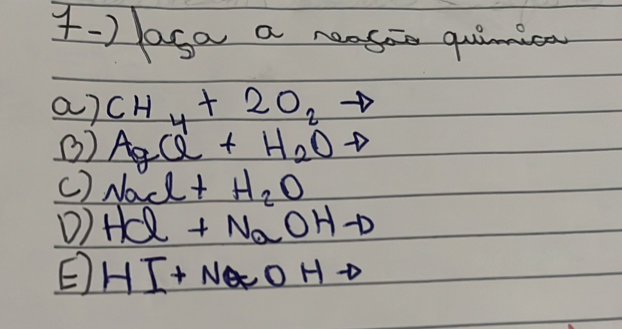 7-) faça a reação química
a) CH₄ + 2O₂ →
B) AgCl + H₂O →
C) Nacl + H₂O
D) Hcl + NaOH →
E) HI + NaOH →